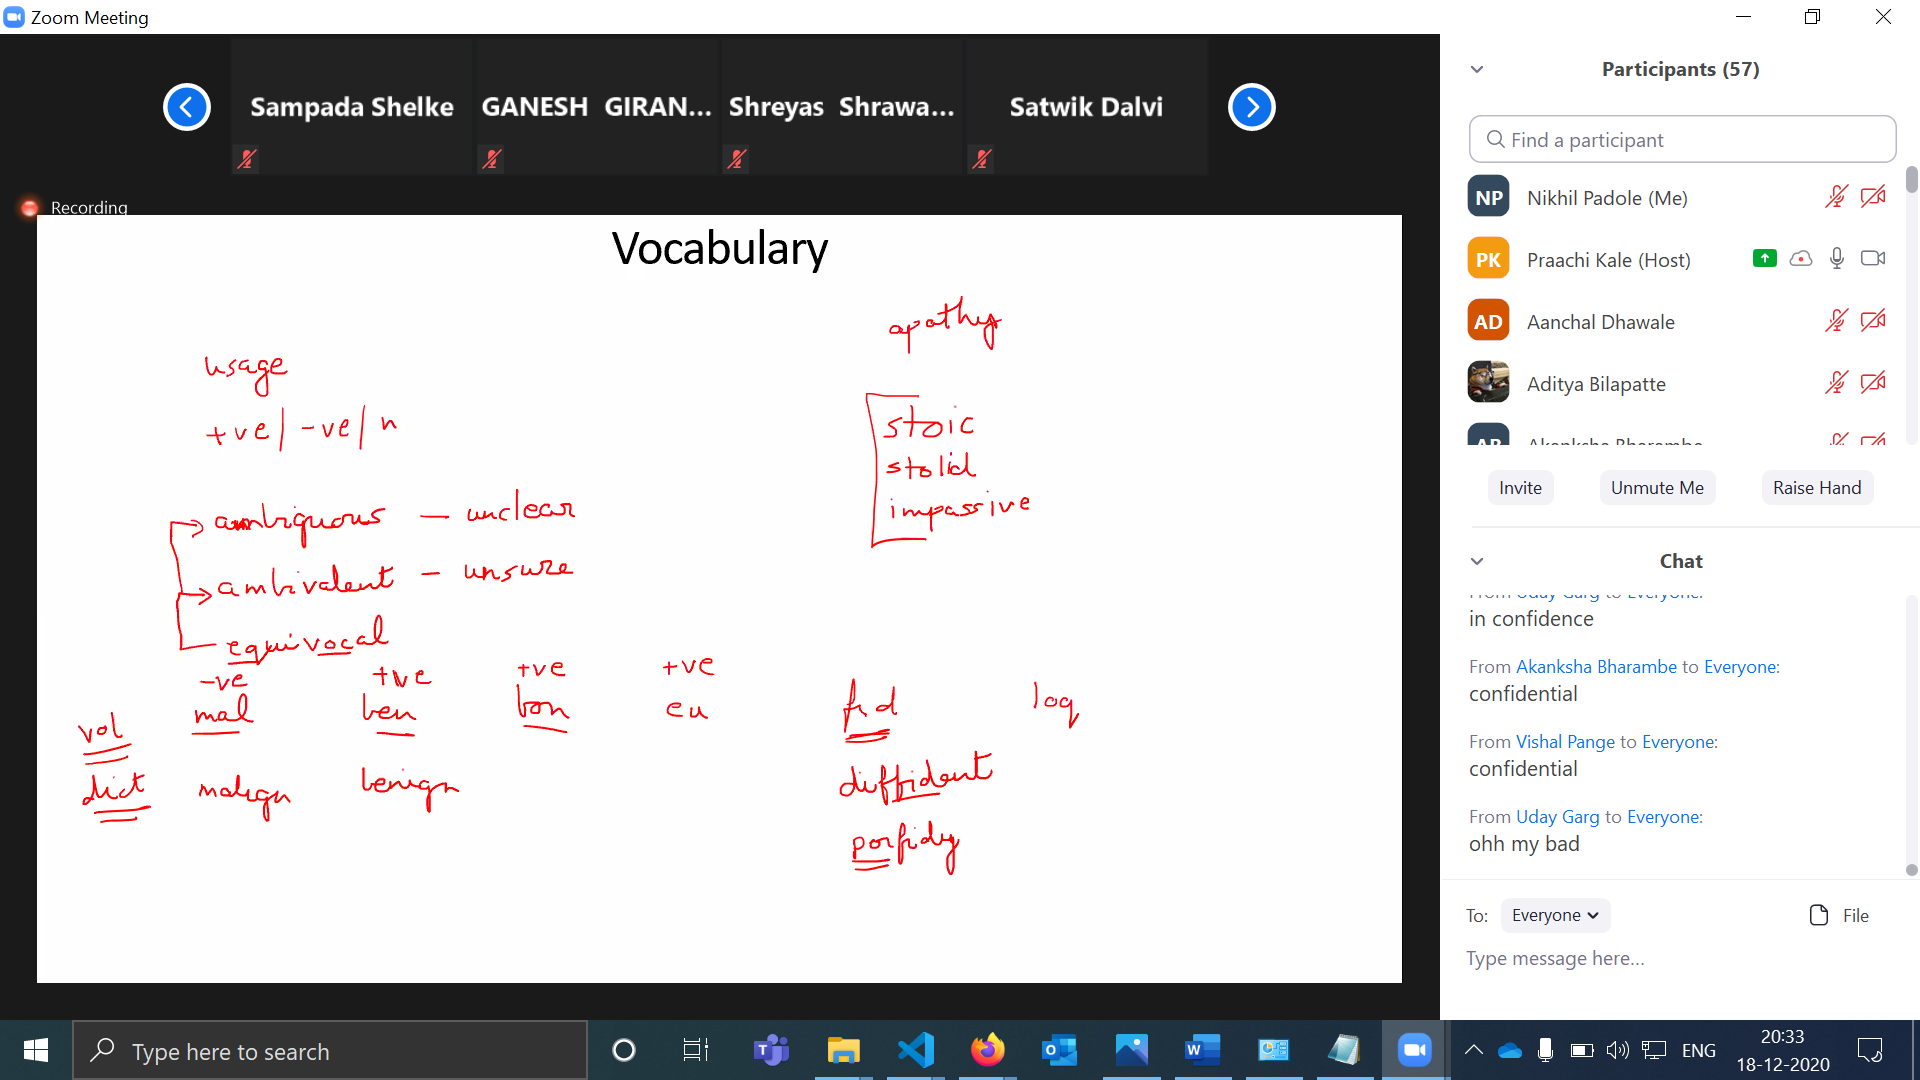 Zoom Meeting
Sampada Shelke
GANESH GIRAN...
Shreyas Shrawa...
Satwik Dalvi
Recording
Vocabulary
apathy
usage
+ve | -ve | n
stoic
stolid
impassive
ambiguous — unclear
ambivalent — unsure
equivocal
-ve +ve +ve +ve
vol mal ben bon eu fid loq
dict malign benign diffident
perfidy
Participants (57)
Find a participant
NP Nikhil Padole (Me)
PK Praachi Kale (Host)
AD Aanchal Dhawale
Aditya Bilapatte
AB Akanksha Bharambe
Invite Unmute Me Raise Hand
Chat
From Uday Garg to Everyone:
in confidence
From Akanksha Bharambe to Everyone:
confidential
From Vishal Pange to Everyone:
confidential
From Uday Garg to Everyone:
ohh my bad
To: Everyone File
Type message here...
Type here to search
ENG
20:33
18-12-2020